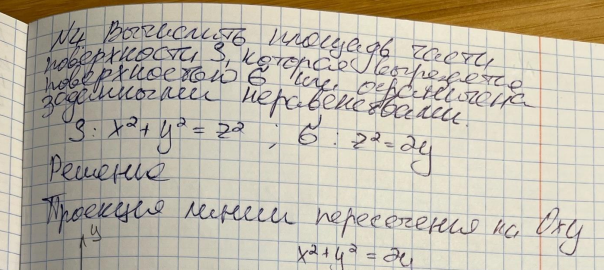 №4 Вычислить площадь части
поверхности З, которая вырезается
поверхностью б или ограничена
заданными неравенствами.
З: x²+y²=z² ; б : z²=2y
Решение
Проекция линии пересечения на Oxy
y
x²+y²=2y